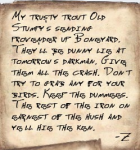 My trusty trout Old
Stumpy's sending
provender up Boneyard.
They'll be dunny lie at
tomorrow's darkman. Give
them all the crash. Don't
try to grab any for your
birds. Keep the dummees.
The rest of the iron on
earnest of the hush and
yell hig the ken.
-Z